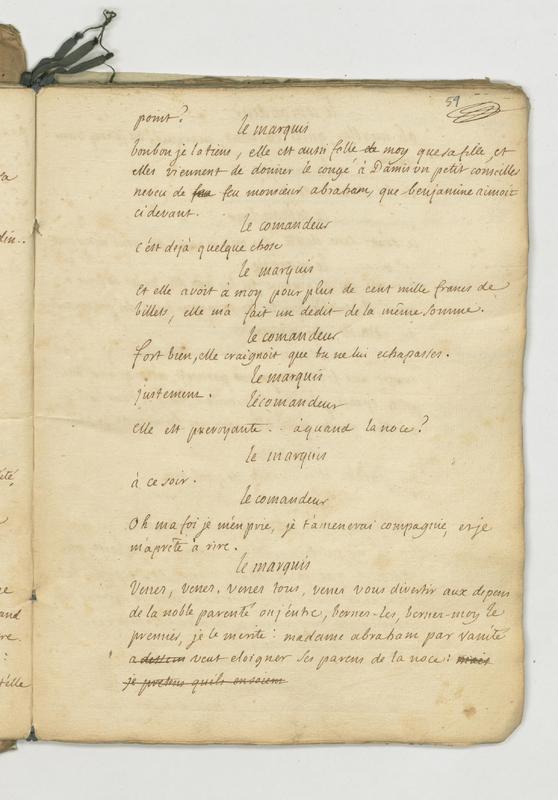 59
point?
le marquis
bonbon je la tiens, elle est aussi folle de moy que sa fille, et
elles viennent de donner le congé à Damis un petit conseiller
neveu de feu feu monsieur abraham, que benjamine aimoit
ci devant.
le comandeur
c'est dejà quelque chose
le marquis
et elle avoit à moy pour plus de cent mille francs de
billets, elle m'a fait un dedit de la même somme.
le comandeur
fort bien, elle craignoit que tu ne lui echapasses.
le marquis
justement.
le comandeur
elle est prevoyante .. à quand la noce?
le marquis
à ce soir.
le comandeur
Oh ma foi je m'en prie, je t'amenerai compagnie, et je
m'aprete à rire.
le marquis
Venes, venes, venes tous, venes vous divertir aux depens
de la noble parenté ou j'entre, bernes-les, bernes-moy le
premier, je le merite: madame abraham par vanité
a dessein veut eloigner ses parens de la noce: mais
je pretens quils en soient